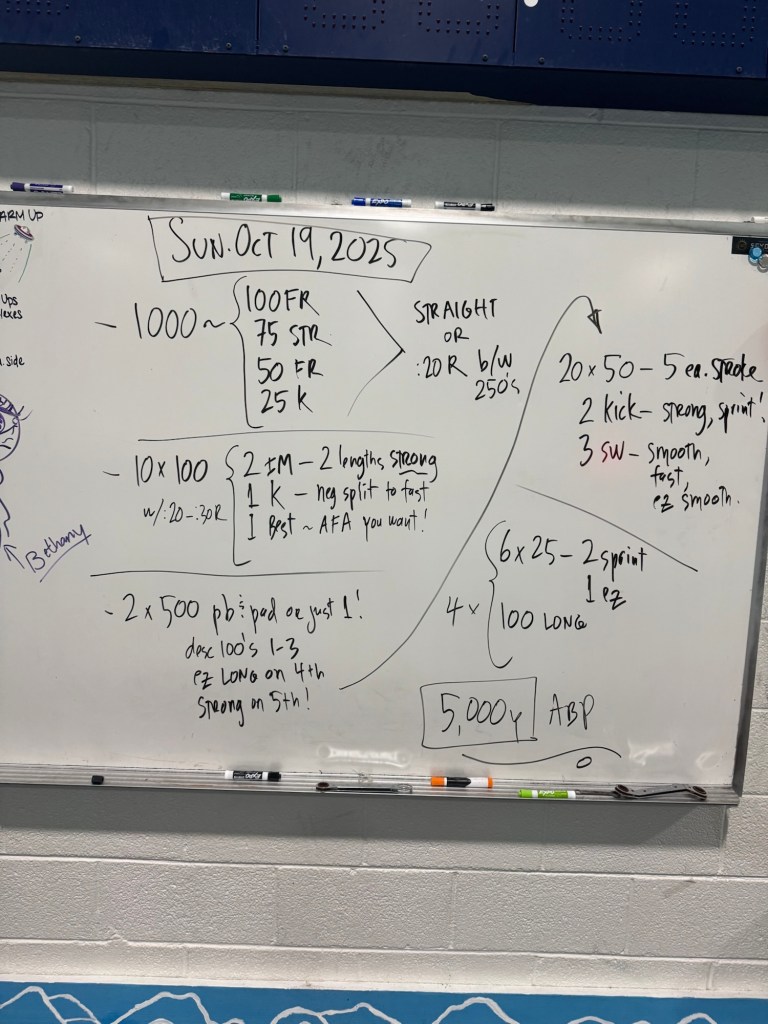 ARM UP
Ups
lexes
. side
Bethany
SUN. OCT 19, 2025
- 1000 ~ { 100 FR
75 STR
50 FR
25 K
STRAIGHT
OR
:20 R b/w
250's
- 10 x 100 { 2 IM - 2 lengths strong
w/ :20 - :30 R
1 K - neg split to fast
1 Best ~ AFA you want!
- 2 x 500 pb & pad or just 1!
desc 100's 1-3
ez LONG on 4th
STRONG on 5th!
20 x 50 - 5 ea. STROKE
2 kick - strong, sprint!
3 SW - smooth,
fast,
ez smooth.
4 x { 6 x 25 - 2 sprint
1 ez
100 LONG
5,000y ABP
EXPO
EXPO